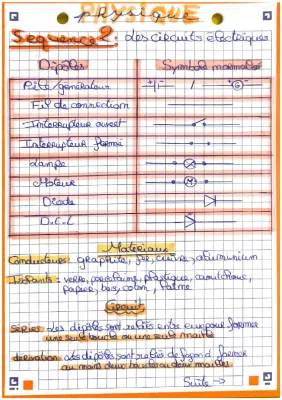 PHYSIQUE
physique
Sequence 2 : Les circuits électriques
Dipôles
Symbole normalisé
Pile/générateur
Fil de connection
Interrupteur ouvert
Interrupteur fermé
Lampe
Moteur
Diode
D.E.L
Materiaux
Conducteurs : graphite, fer, cuivre, aluminium
Isolants : verre, porcelaine, plastique, caoutchouc,
papier, bois, coton,
Circuit
Séries : Les dipôles sont reliés entre eux pour former
une seule boucle ou une seule maille
dérivation : Les dipôles sont reliés de façon à former
au moins deux boucles ou deux mailles
Suite →